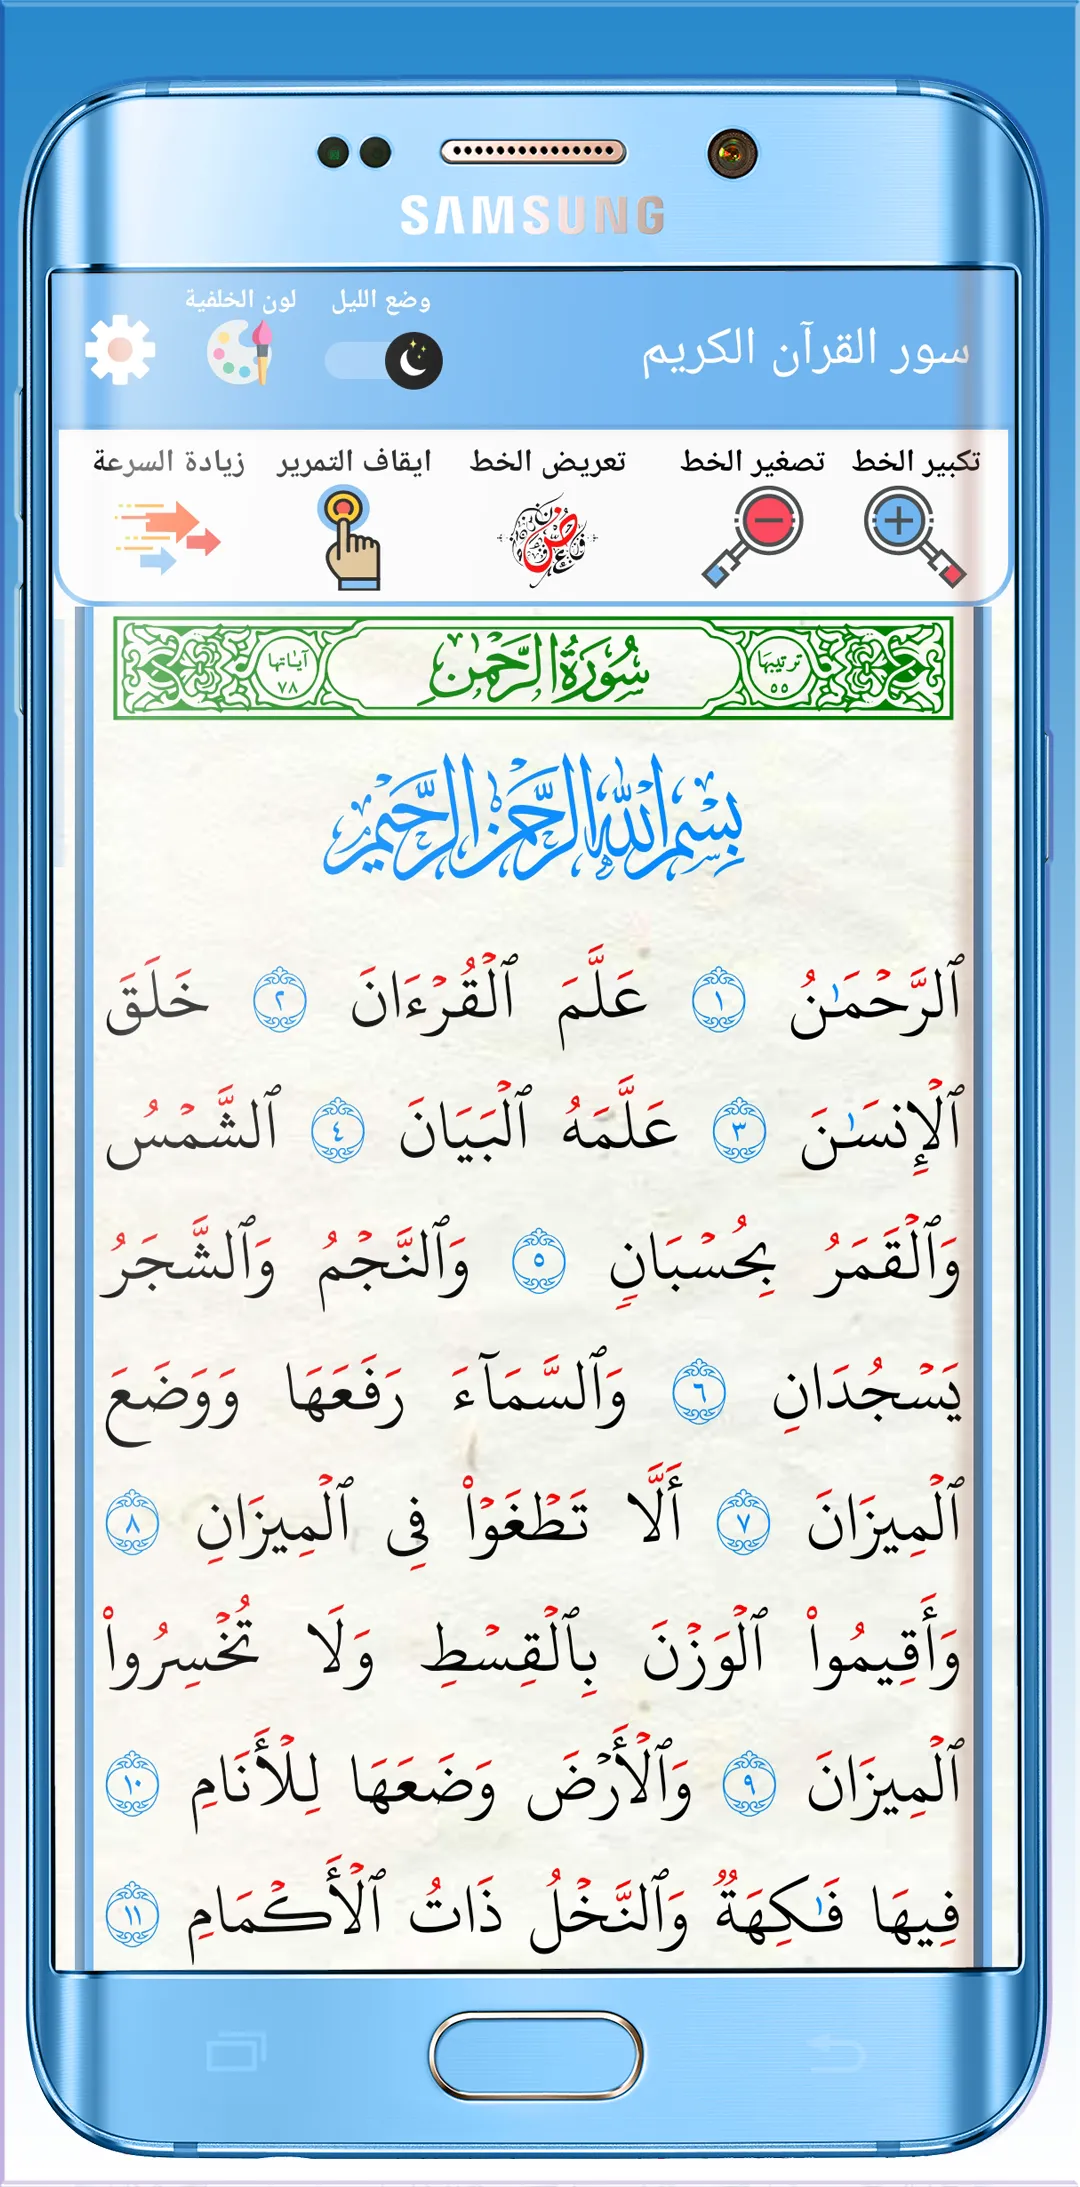 SAMSUNG
لون الخلفية
وضع الليل
سور القرآن الكريم
تكبير الخط
تصغير الخط
تعريض الخط
ايقاف التمرير
زيادة السرعة
ترتيبها ٥٥
سُورَةُ الرَّحْمٰنِ
آياتها ٧٨
بِسْمِ اللَّهِ الرَّحْمَٰنِ الرَّحِيمِ
ٱلرَّحۡمَـٰنُ ١ عَلَّمَ ٱلۡقُرۡءَانَ ٢ خَلَقَ
ٱلۡإِنسَـٰنَ ٣ عَلَّمَهُ ٱلۡبَيَانَ ٤ ٱلشَّمۡسُ
وَٱلۡقَمَرُ بِحُسۡبَانٍ ٥ وَٱلنَّجۡمُ وَٱلشَّجَرُ
يَسۡجُدَانِ ٦ وَٱلسَّمَآءَ رَفَعَهَا وَوَضَعَ
ٱلۡمِيزَانَ ٧ أَلَّا تَطۡغَوۡاْ فِى ٱلۡمِيزَانِ ٨
وَأَقِيمُواْ ٱلۡوَزۡنَ بِٱلۡقِسۡطِ وَلَا تُخۡسِرُواْ
ٱلۡمِيزَانَ ٩ وَٱلۡأَرۡضَ وَضَعَهَا لِلۡأَنَامِ ١٠
فِيهَا فَـٰكِهَةٌ وَٱلنَّخۡلُ ذَاتُ ٱلۡأَكۡمَامِ ١١